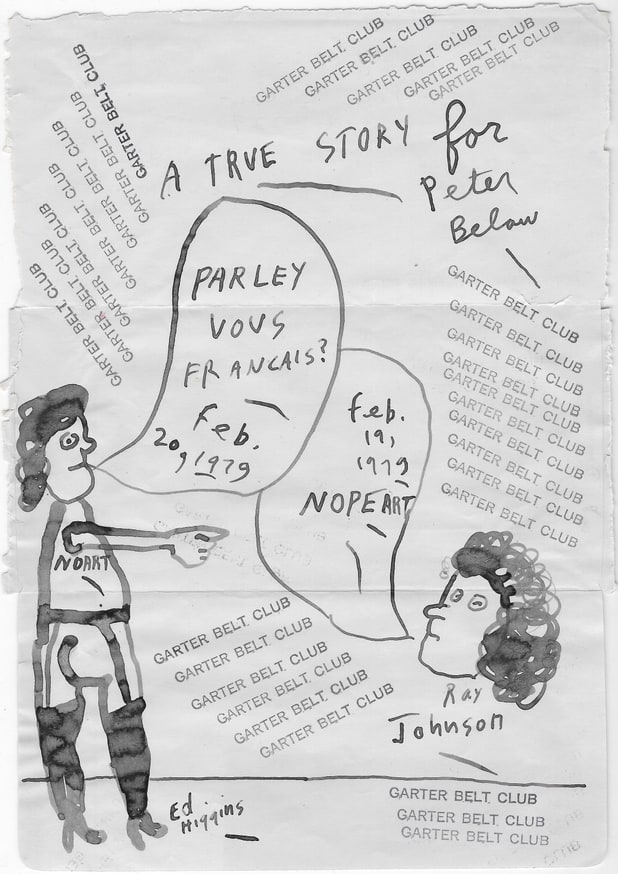 GARTER BELT CLUB
GARTER BELT CLUB
GARTER BELT CLUB
GARTER BELT CLUB
GARTER BELT CLUB
GARTER BELT CLUB
GARTER BELT CLUB
GARTER BELT CLUB
GARTER BELT CLUB
GARTER BELT CLUB
GARTER BELT CLUB
GARTER BELT CLUB
A TRVE STORY for
Peter
Below
PARLEY
VOVS
FRANCAIS?
Feb.
20, 1979
feb.
19,
1979
NOPEART
GARTER BELT CLUB
GARTER BELT CLUB
GARTER BELT CLUB
GARTER BELT CLUB
GARTER BELT CLUB
GARTER BELT CLUB
GARTER BELT CLUB
GARTER BELT CLUB
GARTER BELT CLUB
GARTER BELT CLUB
NOART
GARTER BELT CLUB
GARTER BELT CLUB
GARTER BELT CLUB
GARTER BELT CLUB
GARTER BELT CLUB
GARTER BELT CLUB
Ray
Johnson
Ed
Higgins
GARTER BELT CLUB
GARTER BELT CLUB
GARTER BELT CLUB